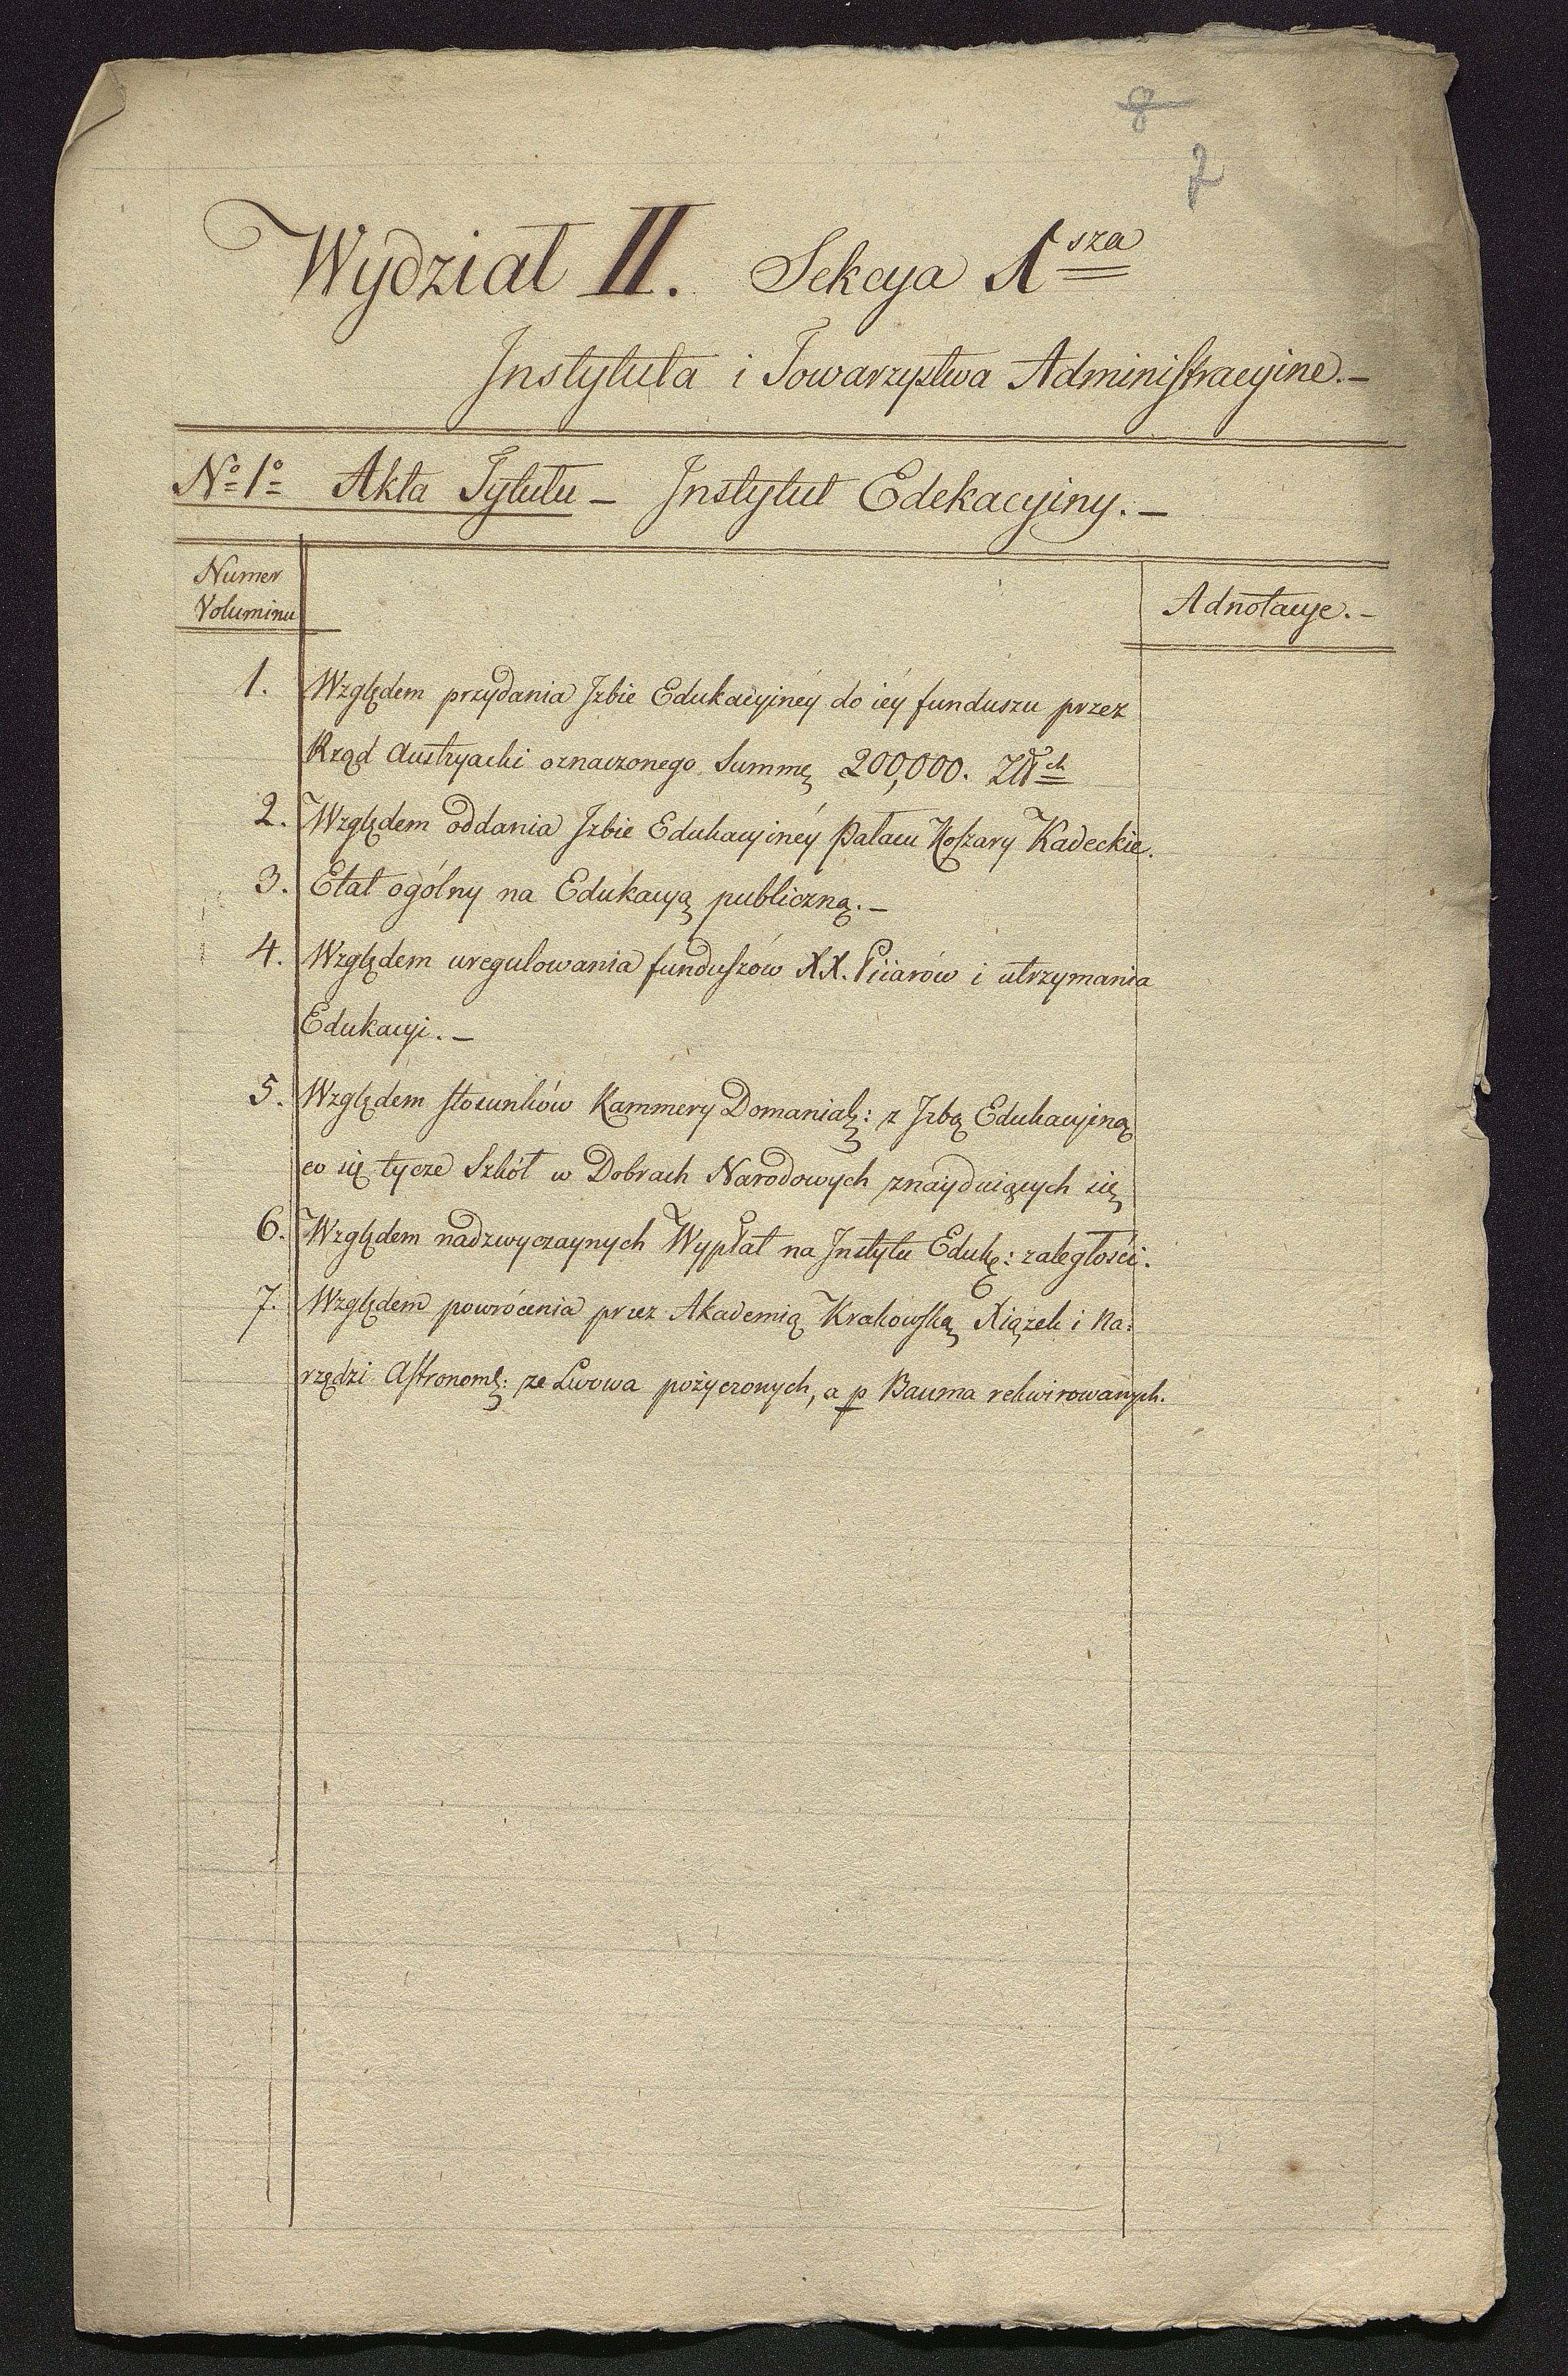 8
7
Wydział II. Sekcya 1sza
Instytuta i Towarzystwa Administracyine.–
No 1o Akta Tytułu – Instytut Edekacyiny.–
Numer
Voluminu
Adnotacye.–
1. Względem przydania Jzbie Edukacyinéy do iéy funduszu przez
Rząd Austryacki oznaczonego Summę 200,000. Złł
2. Względem oddania Jzbie Edukacyinéy Pałacu Koszary Kadeckie.
3. Etat ogólny na Edukacyą publiczną.–
4. Względem uregulowania funduszów XX. Piiarów i utrzymania
Edukacyi.–
5. Względem stosunków Kammery Domanial: z Jzbą Edukacyiną
co się tycze Szkół w Dobrach Narodowych znayduiących się
6. Względem nadzwyczaynych Wypłat na Instytu Eduk: zaległości.
7. Względem powrócenia przez Akademią Krakowską Xiążek i Na:
rzędzi Astronom: ze Lwowa pożyczonych, a p Bauma rekwirowanych.